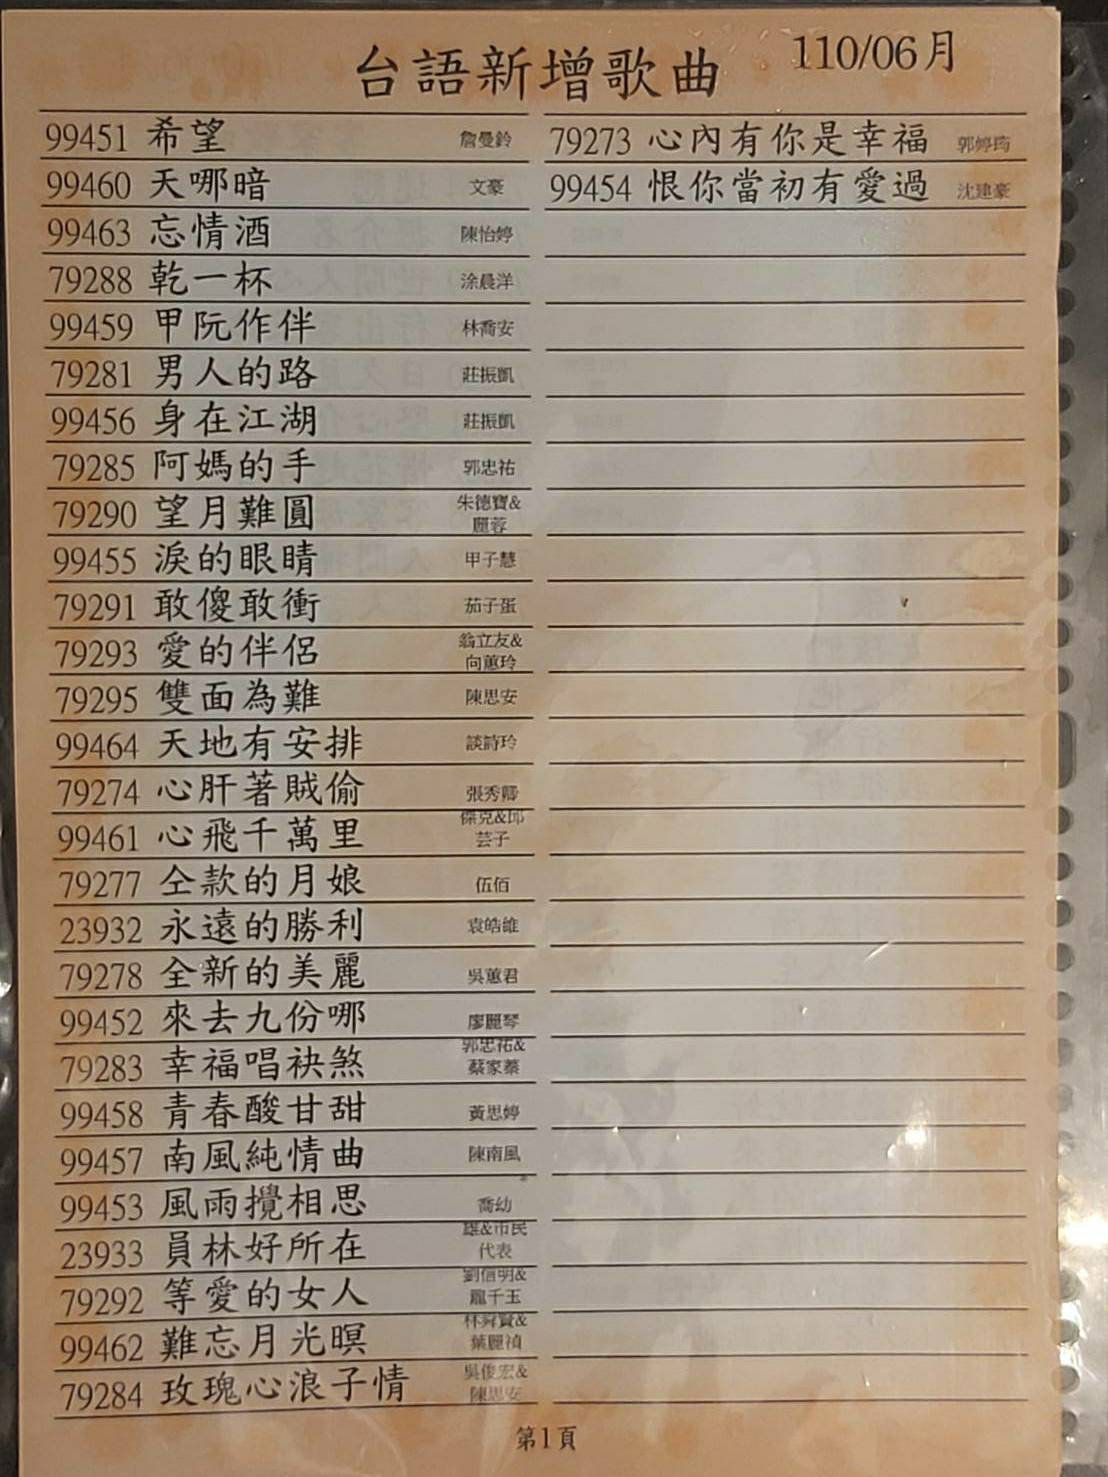 台語新增歌曲 110/06月
99451 希望 詹曼鈴
99460 天哪暗 文豪
99463 忘情酒 陳怡婷
79288 乾一杯 涂晨洋
99459 甲阮作伴 林喬安
79281 男人的路 莊振凱
99456 身在江湖 莊振凱
79285 阿媽的手 郭忠祐
79290 望月難圓 朱德寶&麗蓉
99455 淚的眼睛 甲子慧
79291 敢傻敢衝 茄子蛋
79293 愛的伴侶 翁立友&向蕙玲
79295 雙面為難 陳思安
99464 天地有安排 談詩玲
79274 心肝著賊偷 張秀卿
99461 心飛千萬里 傑克&邱芸子
79277 仝款的月娘 伍佰
23932 永遠的勝利 袁皓維
79278 全新的美麗 吳蕙君
99452 來去九份哪 廖麗琴
79283 幸福唱袂煞 郭忠祐&蔡家蓁
99458 青春酸甘甜 黃思婷
99457 南風純情曲 陳南風
99453 風雨攪相思 喬幼
23933 員林好所在 雄&市民代表
79292 等愛的女人 劉信明&龍千玉
99462 難忘月光暝 林舜賢&葉麗禎
79284 玫瑰心浪子情 吳俊宏&陳思安
79273 心內有你是幸福 郭婷筠
99454 恨你當初有愛過 沈建豪
第1頁